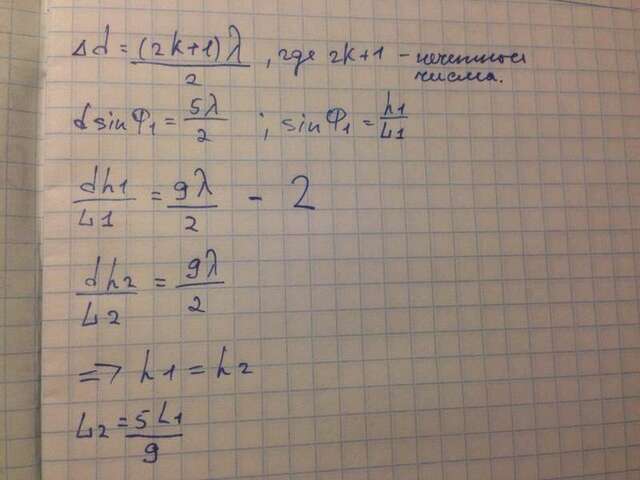 Δd = (2k+1)λ / 2 , где 2k+1 - нечетные
числа.
d sin φ1 = 5λ / 2 ; sin φ1 = h1 / L1
dh1 / L1 = 9λ / 2 - 2
dh2 / L2 = 9λ / 2
=> h1 = h2
L2 = 5L1 / 9